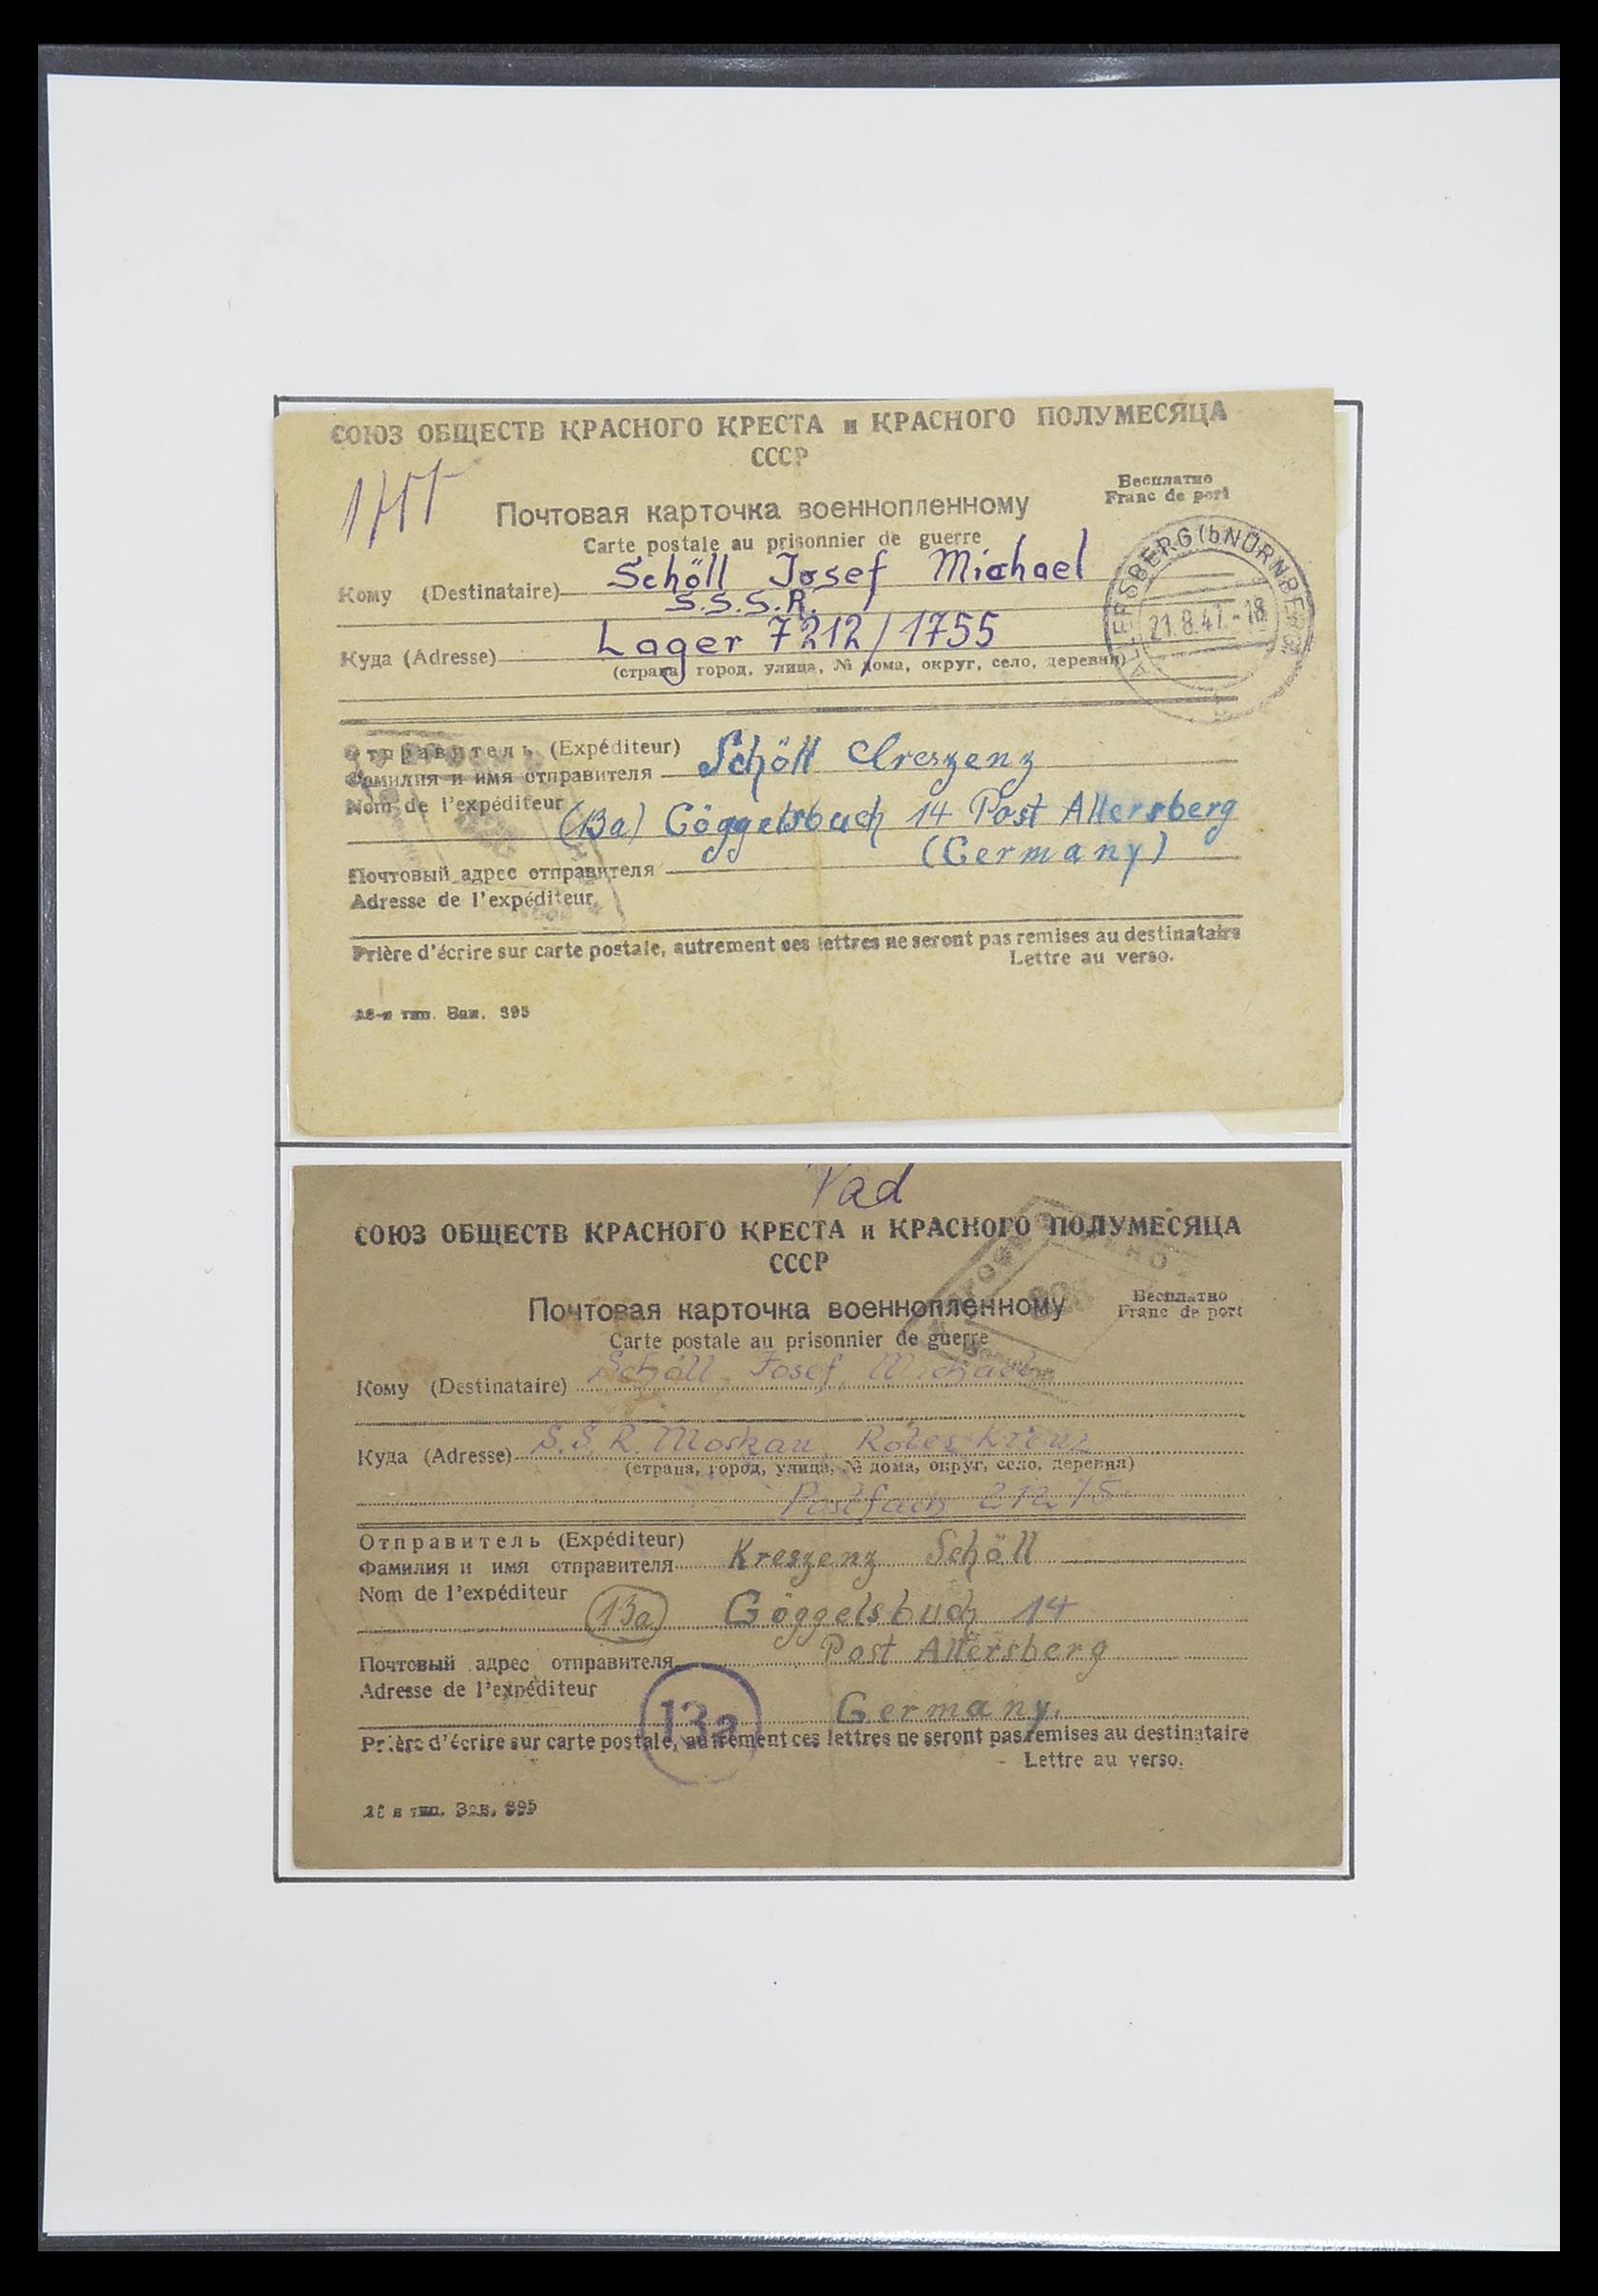 СОЮЗ ОБЩЕСТВ КРАСНОГО КРЕСТА и КРАСНОГО ПОЛУМЕСЯЦА
СССР
Бесплатно
Franc de port
Почтовая карточка военнопленному
Carte postale au prisonnier de guerre
Кому (Destinataire) Schöll Josef Michael
S.S.S.R.
Куда (Adresse) Lager 7212/1755
(страна, город, улица, № дома, округ, село, деревня)
ALLERSBERG (b NÜRNBERG)
21.8.47.-18
Отправитель (Expéditeur)
Фамилия и имя отправителя Schöll Creszenz
Nom de l'expéditeur
(13a) Göggelsbuch 14 Post Allersberg
(Germany)
Почтовый адрес отправителя
Adresse de l'expéditeur
Prière d'écrire sur carte postale, autrement ces lettres ne seront pas remises au destinataire
Lettre au verso.
тип. Зак. 395
СОЮЗ ОБЩЕСТВ КРАСНОГО КРЕСТА и КРАСНОГО ПОЛУМЕСЯЦА
СССР
Почтовая карточка военнопленному
Бесплатно
Franc de port
Carte postale au prisonnier de guerre
Кому (Destinataire) Schöll Josef Michael
Куда (Adresse) S.S.R. Moskau Rotes Kreuz
(страна, город, улица, № дома, округ, село, деревня)
Postfach
Отправитель (Expéditeur)
Фамилия и имя отправителя Kreszenz Schöll
Nom de l'expéditeur
13a Göggelsbuch 14
Post Allersberg
Почтовый адрес отправителя
Adresse de l'expéditeur
Germany.
13a
Prière d'écrire sur carte postale, autrement ces lettres ne seront pas remises au destinataire
Lettre au verso.
тип. Зак. 395